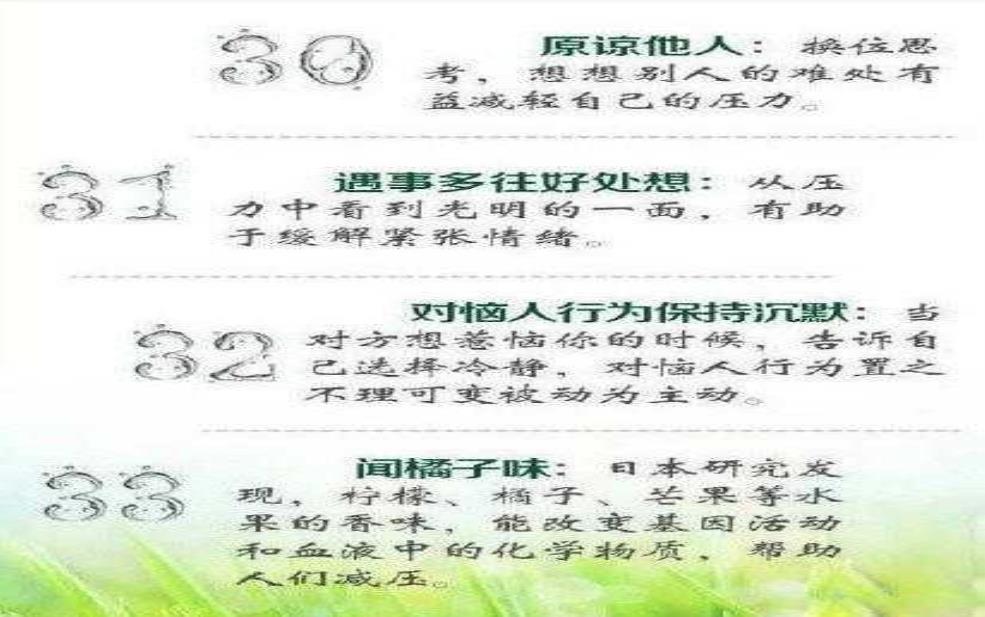 30 原谅他人：换位思
考，想想别人的难处有
益减轻自己的压力。
31 遇事多往好处想：从压
力中看到光明的一面，有助
于缓解紧张情绪。
对恼人行为保持沉默：当
32 对方想惹恼你的时候，告诉自
己选择冷静，对恼人行为置之
不理可变被动为主动。
33 闻橘子味：日本研究发
现，柠檬、橘子、芒果等水
果的香味，能改变基因活动
和血液中的化学物质，帮助
人们减压。